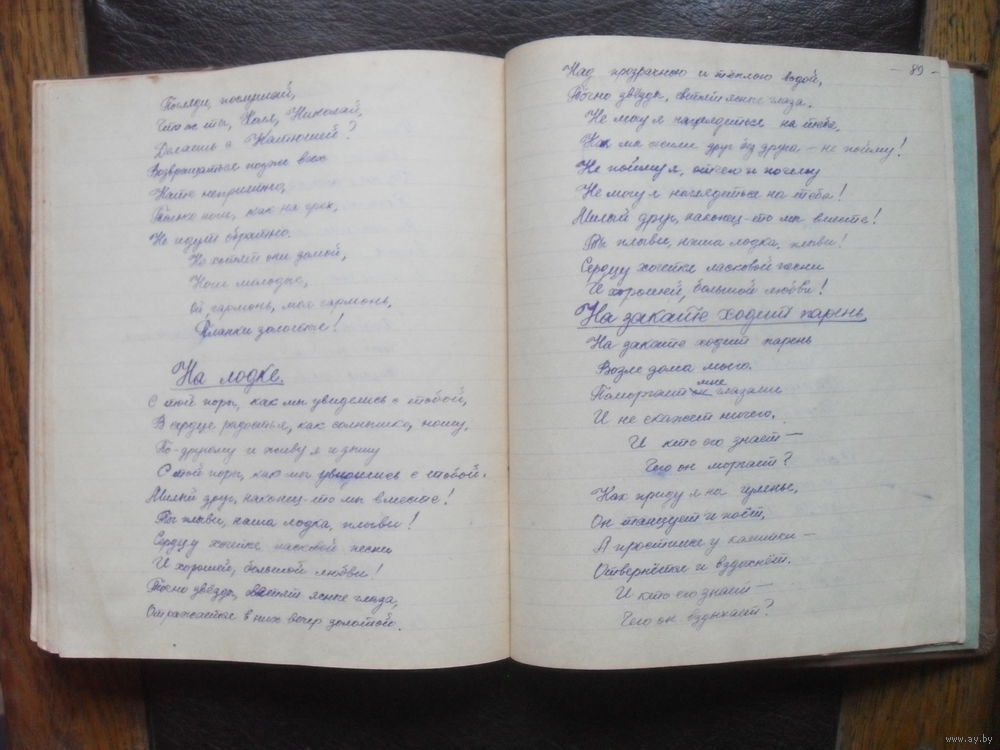 Погляди, послушай,
Что ж ты, Коля, Николай,
Делаешь с Катюшей?
Возвращаться позже всех
Кате неприятно,
Только ноги, как на грех,
Не идут обратно.
Не хотят они домой,
Ноги молодые,
Ой, гармонь, моя гармонь,
Планки золотые!
На лодке.
С той поры, как мы увиделись с тобой,
В сердце радость я, как солнышко, ношу,
По-другому и живу я и дышу
С той поры, как мы увиделись с тобой.
Милый друг, наконец-то мы вместе!
Ты плыви, наша лодка, плыви!
Сердцу хочется ласковой песни
И хорошей, большой любви!
Тосно звёзды, светят ясные глаза,
Отражается в них вечер золотой.
- 89 -
Над прозрачною и тёплою водой,
Точно звёзды, светят ясные глаза.
Не могу я наглядеться на тебя,
Как мы жили друг без друга - не пойму!
Не пойму я, отчего и почему
Не могу я наглядеться на тебя!
Милый друг, наконец-то мы вместе!
Ты плыви, наша лодка, плыви!
Сердцу хочется ласковой песни
И хорошей, большой любви!
На закате ходит парень
На закате ходит парень
Возле дома моего.
Поморгает мне глазами
И не скажет ничего.
И кто его знает -
Чего он моргает?
Как приду я на гулянье,
Он танцует и поёт,
А простимся у калитки -
Отвернётся и вздохнёт.
И кто его знает -
Чего он вздыхает?
www.ay.by